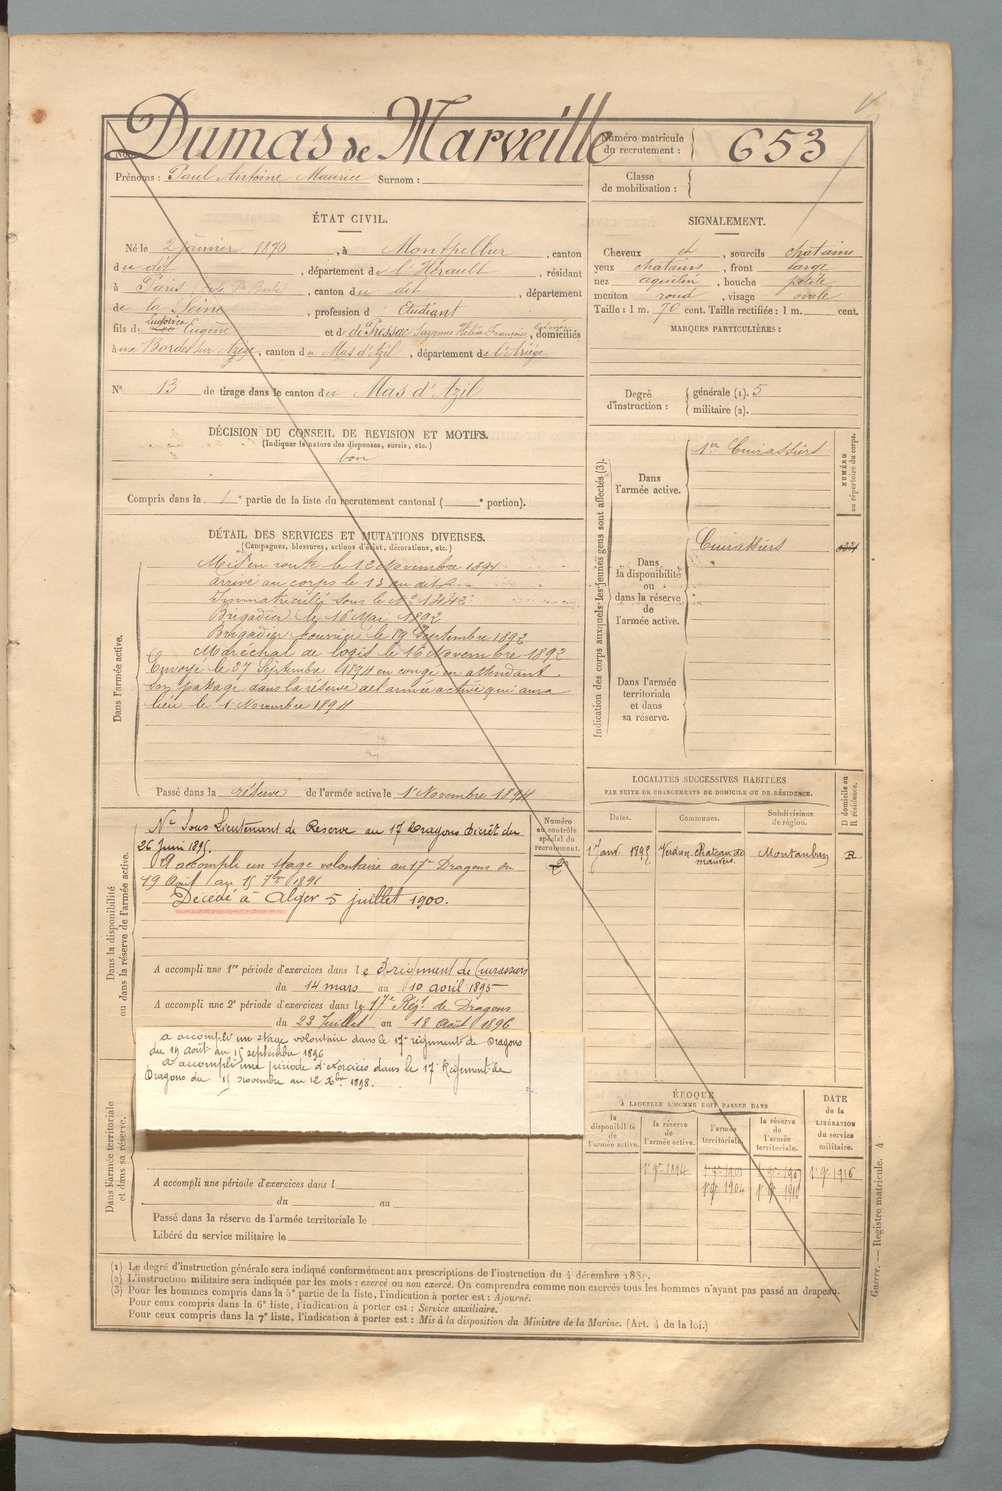 Dumas de Marveille
Numéro matricule
du recrutement :
653
Nom :
Prénoms : Paul Antoine Maurice Surnom :
Classe
de mobilisation :
ÉTAT CIVIL.
Né le 2 janvier 1870, à Montpellier, canton
du dit, département de l'Hérault, résidant
à Paris, canton du dit, département
de la Seine, profession d Etudiant
fils de Ludovic Eugène et de de Pressac Suzanne Hélène Françoise, domiciliés
à Bordes sur Arize, canton du Mas d'Azil, département de l'Ariège
N° 13 de tirage dans le canton du Mas d'Azil
SIGNALEMENT.
Cheveux et, sourcils chatains
yeux chatains, front large
nez aquilin, bouche petite
menton rond, visage ovale
Taille : 1 m. 70 cent. Taille rectifiée : 1 m. cent.
MARQUES PARTICULIÈRES :
Degré
d'instruction :
générale (1). 5
militaire (2).
DÉCISION DU CONSEIL DE REVISION ET MOTIFS.
(Indiquer la nature des dispenses, sursis, etc.)
bon
Compris dans la 1e partie de la liste du recrutement cantonal ( e portion).
DÉTAIL DES SERVICES ET MUTATIONS DIVERSES.
(Campagnes, blessures, actions d'éclat, décorations, etc.)
Dans l'armée active.
Mis en route le 12 Novembre 1891
arrivé au corps le 13 du dit
Immatriculé sous le N°
Brigadier le 16 Mai 1892
Brigadier fourrier le 19 Septembre 1892
Maréchal de logis le 16 Novembre 1892
Envoyé le 27 Septembre 1894 en congé en attendant
son passage dans la réserve de l'armée active qui aura
lieu le 1 Novembre 1894
Passé dans la réserve de l'armée active le 1 Novembre 1894
Indication des corps auxquels les jeunes gens sont affectés (3).
NUMÉRO
au répertoire du corps.
Dans
l'armée active.
1er Cuirassiers
Dans
la disponibilité
ou
dans la réserve
de
l'armée active.
Cuirassiers
Dans l'armée
territoriale
et dans
sa réserve.
LOCALITÉS SUCCESSIVES HABITÉES
PAR SUITE DE CHANGEMENTS DE DOMICILE OU DE RÉSIDENCE.
D domicile ou
R résidence.
Dates.
Communes.
Subdivisions
de région.
Verdun, Chateau de
mauvers.
Montauban
R
Dans la disponibilité
ou dans la réserve de l'armée active.
Numéro
au contrôle
spécial du
recrutement.
Né Sous Lieutenant de Réserve au 17 Dragons Décret du
26 Juin 1895.
A accompli un stage volontaire au 17e Dragons du
19 Août au 15 7bre 1896
Décédé à Alger 5 juillet 1900.
A accompli une 1re période d'exercices dans le Régiment de Cuirassiers
du 14 mars au 10 avril 1895
A accompli une 2e période d'exercices dans le 17e Régt de Dragons
du 22 Juillet au 18 Août 1896
a accompli un stage volontaire dans le 17e régiment de Dragons
du 19 août au 15 septembre 1896
a accompli une période d'exercices dans le 17e Régiment de
Dragons du 15 novembre au 12 Xbre 1898.
Dans l'armée territoriale
et dans sa réserve.
ÉPOQUE
À LAQUELLE L'HOMME DOIT PASSER DANS
la
disponibilité
de
l'armée active.
la réserve
de
l'armée active.
l'armée
territoriale.
la réserve
de
l'armée
territoriale.
DATE
de la
LIBÉRATION
du service
militaire.
1er 9re 1894
1er 9re 1904
1er 9re 1910
1er 9re 1916
A accompli une période d'exercices dans l
du au
Passé dans la réserve de l'armée territoriale le
Libéré du service militaire le
(1) Le degré d'instruction générale sera indiqué conformément aux prescriptions de l'instruction du 4 décembre 1889.
(2) L'instruction militaire sera indiquée par les mots : exercé ou non exercé. On comprendra comme non exercés tous les hommes n'ayant pas passé au drapeau.
(3) Pour les hommes compris dans la 5e partie de la liste, l'indication à porter est : Ajourné.
Pour ceux compris dans la 6e liste, l'indication à porter est : Service auxiliaire.
Pour ceux compris dans la 7e liste, l'indication à porter est : Mis à la disposition du Ministre de la Marine. (Art. 4 de la loi.)
Guerre. — Registre matricule. 4